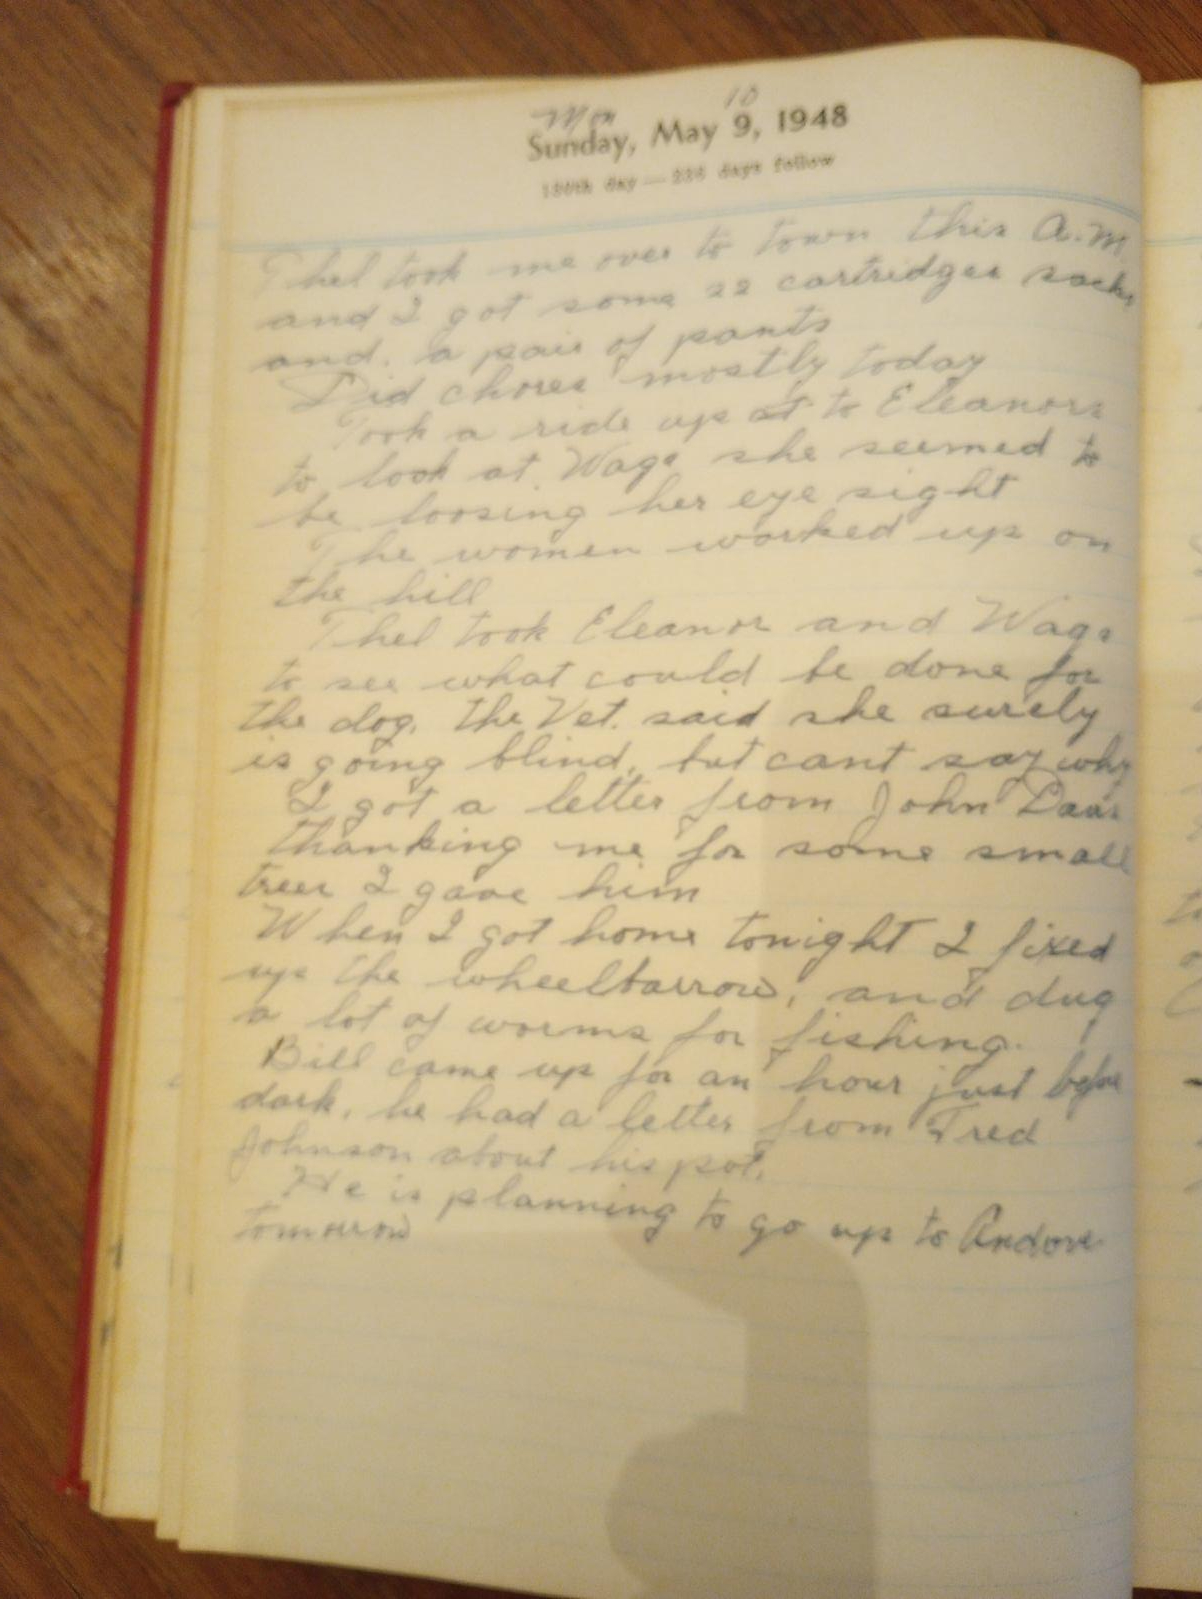 Mon 10
Sunday, May 9, 1948
130th day — 236 days follow
Thel took me over to town this A.M.
and I got some 22 cartridges socks,
and a pair of pants
Did chores mostly today
Took a ride up at to Eleanors
to look at Wags she seemed to
be loosing her eye sight
The women worked up on
the hill
Thel took Eleanor and Wags
to see what could be done for
the dog, the Vet. said she surely
is going blind, but cant say why
I got a letter from John Davis
thanking me for some small
trees I gave him
When I got home tonight I fixed
up the wheelbarrow, and dug
a lot of worms for fishing.
Bill came up for an hour just before
dark, he had a letter from Fred
Johnson about his pot.
He is planning to go up to Andover
tomorrow